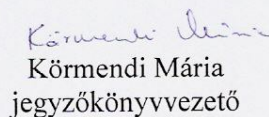 Körmendi Mária
Körmendi Mária
jegyzőkönyvvezető